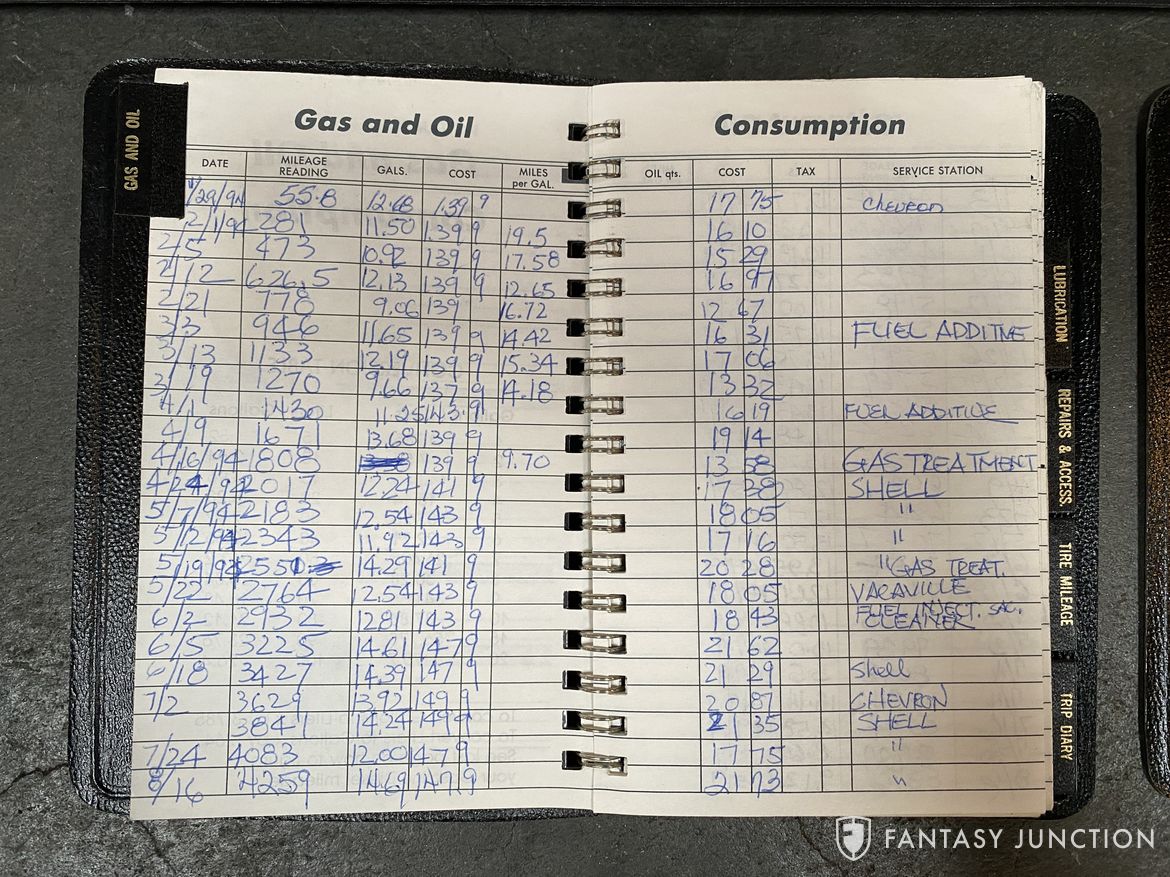 GAS AND OIL
Gas and Oil
DATE MILEAGE READING GALS. COST MILES per GAL.
1/29/94 55.8 12.68 1.39 9
2/1/94 281 11.50 1.39 9 19.5
2/5 473 10.92 139 9 17.58
2/12 626.5 12.13 139 9 12.65
2/21 778 9.06 139 16.72
3/3 946 11.65 139 9 14.42
3/13 1133 12.19 139 9 15.34
3/19 1270 9.66 137 9 14.18
4/1 1430 11.25 143.9
4/9 1671 13.68 139 9
4/16/94 1808 139 9 9.70
4/24/94 2017 12.24 141 9
5/7/94 2183 12.54 143 9
5/2/94 2343 11.92 143 9
5/19/94 2550 14.29 141 9
5/22 2764 12.54 143 9
6/2 2932 12.81 143 9
6/5 3225 14.61 147 9
6/18 3427 14.39 147 9
7/2 3629 13.92 149 9
3841 14.24 149 9
7/24 4083 12.00 147 9
8/16 4259 14.69 147.9
Consumption
OIL qts. COST TAX SERVICE STATION
17 75 Chevron
16 10
15 29
16 97
12 67
16 31 FUEL ADDITIVE
17 06
13 32
16 19 FUEL ADDITIVE
19 14
13 58 GAS TREATMENT
17 38 SHELL
18 05 "
17 16 "
20 28 " GAS TREAT.
18 05 VACAVILLE
18 43 FUEL INJECT. SAC. CLEANER
21 62
21 29 Shell
20 87 CHEVRON
21 35 SHELL
17 75 "
21 73 "
LUBRICATION
REPAIRS & ACCESS.
TIRE MILEAGE
TRIP DIARY
FANTASY JUNCTION